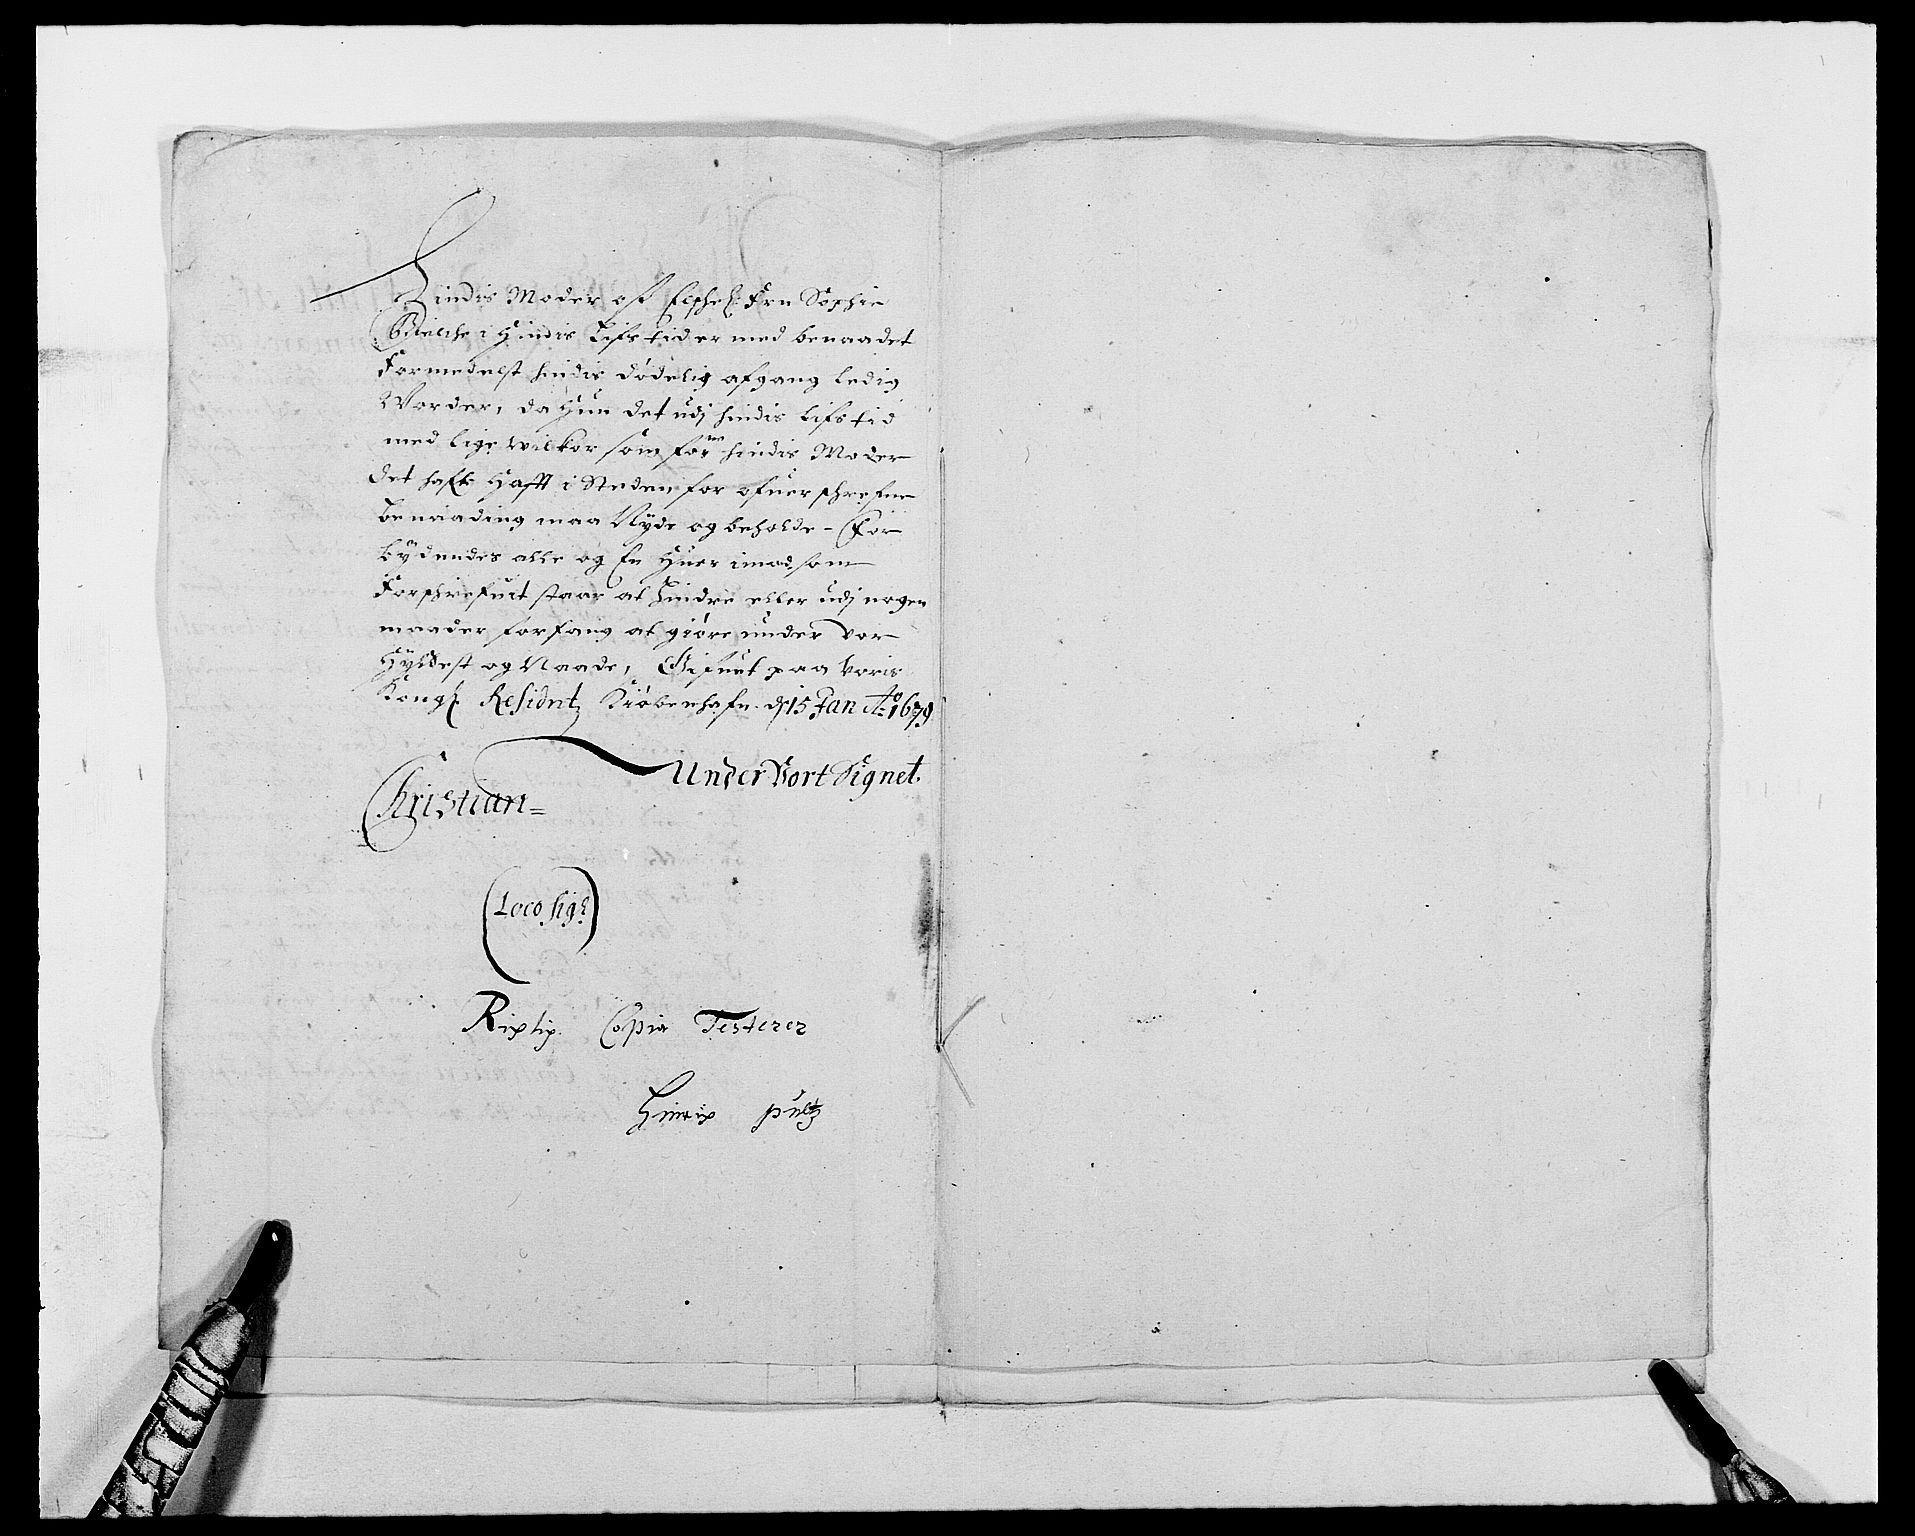 Hindis Moder os Elshel: Fru Sophie
Bielche i Hindis Lifs tid er med benaadet
Formedelst hindis dødelig afgang ledig
Worder, da Hun det udj hindis Lifs tid
med lige wilkor som for hindis Moder
det hafr Hafft i Steden for ofuerschrefne
Benaading maa Nyde og beholde - For
bÿdendes alle og En Huer imod, som
Forschrefuit staar at Hindre eller udj nogen
maader forfang at giøre under vor
Hyldest og Naade, Gifuet paa Voris
Kongl: Residentz Kiøbenhafn. d. 15 Jan Ao: 1679
Under Vort Signet.
Christian =
(Loco Sigl)
Rigtig Copia Testerer
Hinrig Pültz